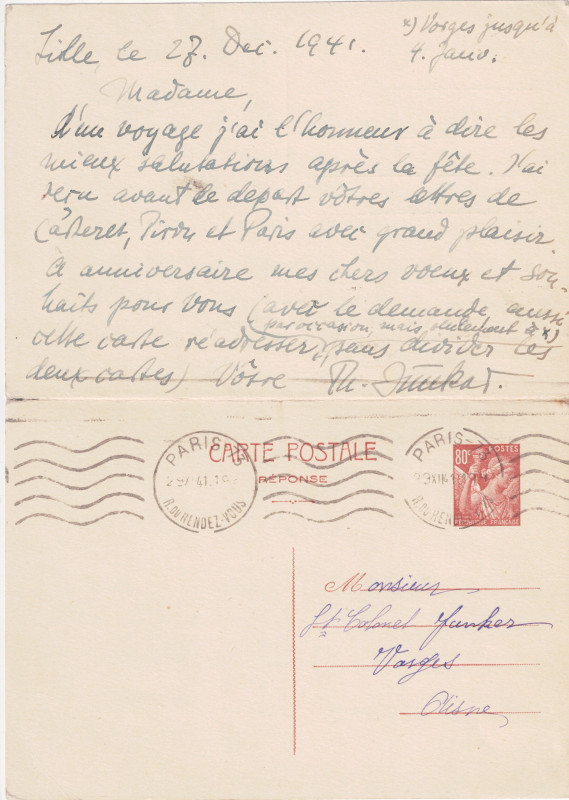 Lille, le 27. Dec. 1941.
*) Vorges jusqu'à
4. Janv.
Madame,
d'un voyage j'ai l'honneur à dire les
mieux salutations après la fête. J'ai
reçu avant le depart vôtres lettres de
et Paris avec grand plaisir.
à anniversaire mes chers voeux et sou-
haits pour Vous (avec le demande, aussi
par occasion, mais seulement à *)
cette carte réadresser, sans divider les
deux cartes) Vôtre Th.
CARTE POSTALE
RÉPONSE
PARIS
41
R. DU RENDEZ-VOUS
PARIS
R. DU RENDEZ-VOUS
80c POSTES
RÉPUBLIQUE FRANÇAISE
Monsieur
Lt Colonel Junker
Vorges
Aisne